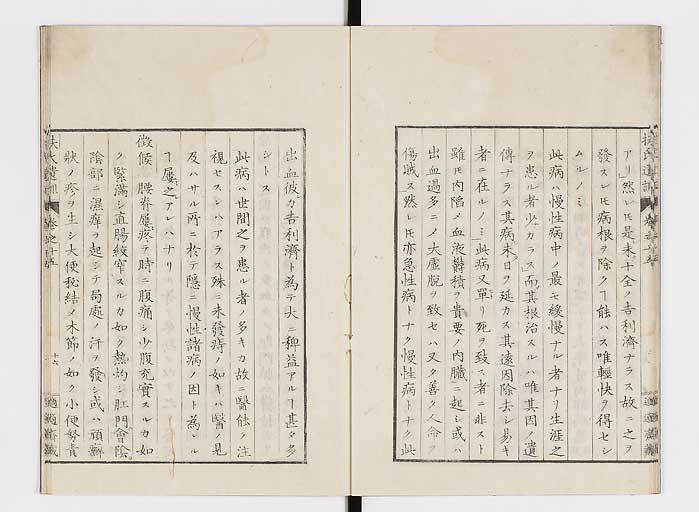 アリ然レ𪜈是未十全ノ吉利濟ナラス故ニ之ヲ
發スレ𪜈病根ヲ除クヿ能ハス唯輕快ヲ得セシ
ムルノミ
此病ハ慢性病中ノ最モ緩慢ナル者ナリ生涯之
ヲ患ル者少カラス而其根治スルハ唯其因ノ遺
傳ナラス其病未日ヲ延カス其遠因除去シ易キ
者ニ在ルノミ此病又單リ死ヲ致ス者ニ非スト
雖𪜈内陷メ血液欝積ヲ貴要ノ内臓ニ起シ或ハ
出血過多ニメ大虛脱ヲ致セハ又タ善ク人命ヲ
傷賊ス然レ𪜈亦急性病トナク慢性病トナク此
出血彼カ吉利濟ト為テ大ニ稗益アルヿ甚タ多
シトス
此病ハ世間之ヲ患ル者ノ多キカ故ニ醫能ク注
視セスンハアラス殊ニ未發痔ノ如キハ醫ノ見
及ハサル所ニ於テ隱ニ慢性諸病ノ因ト為レル
ヿ屢之アレハナリ
徴候 腰脊屢疼テ時ニ腹痛シ少腹充實スルカ如
ク緊滿シ直腸絞窄スルカ如ク熱灼シ肛門會陰
陰部ニ濕痒ヲ起シテ局處ノ汗ヲ發シ或ハ頑癬
狀ノ疹ヲ生シ大便秘結ノ木節ノ如ク小便努責
扶氏遺訓 卷之十五 十六